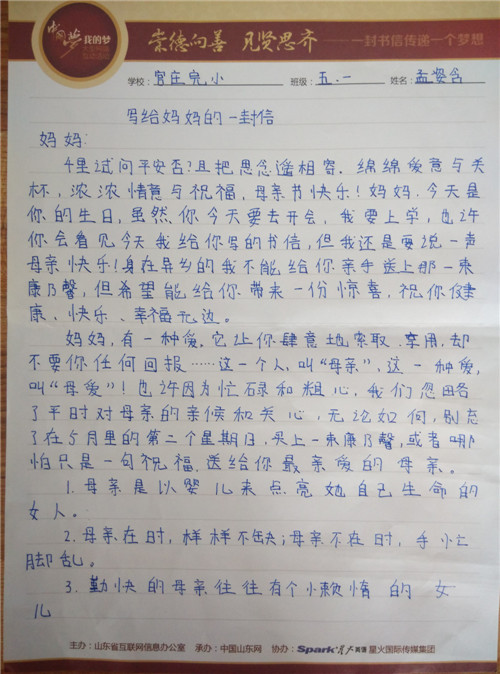 中国梦 我的梦
崇德向善 见贤思齐 ——一封书信传递一个梦想
学校：官庄完小 班级：五.一 姓名：孟姿含
写给妈妈的一封信
妈妈：
千里试问平安否？且把思念遥相寄。绵绵爱意与关
怀，浓浓情意与祝福，母亲节快乐！妈妈，今天是
你的生日，虽然你今天要去开会，我要上学，也许
你会看见今天我给你写的书信，但我还是要说一声
母亲快乐！身在异乡的我不能给你亲手送上那一束
康乃馨，但希望能给你带来一份惊喜，祝你健
康、快乐、幸福无边。
妈妈，有一种爱，它让你肆意地索取、享用，却
不要你任何回报……这一个人，叫“母亲”，这一种爱，
叫“母爱”！也许因为忙碌和粗心，我们忽略
了平时对母亲的亲候和关心，无论如何，别忘
了在5月里的第二个星期日，买上一束康乃馨，或者哪
怕只是一句祝福，送给你最亲爱的母亲。
1. 母亲是以婴儿来点亮她自己生命的
女人。
2. 母亲在时，样样不缺；母亲不在时，手忙
脚乱。
3. 勤快的母亲往往有个懒惰的女
儿
主办：山东省互联网信息办公室 承办：中国山东网 协办：Spark 星火英语 星火国际传媒集团